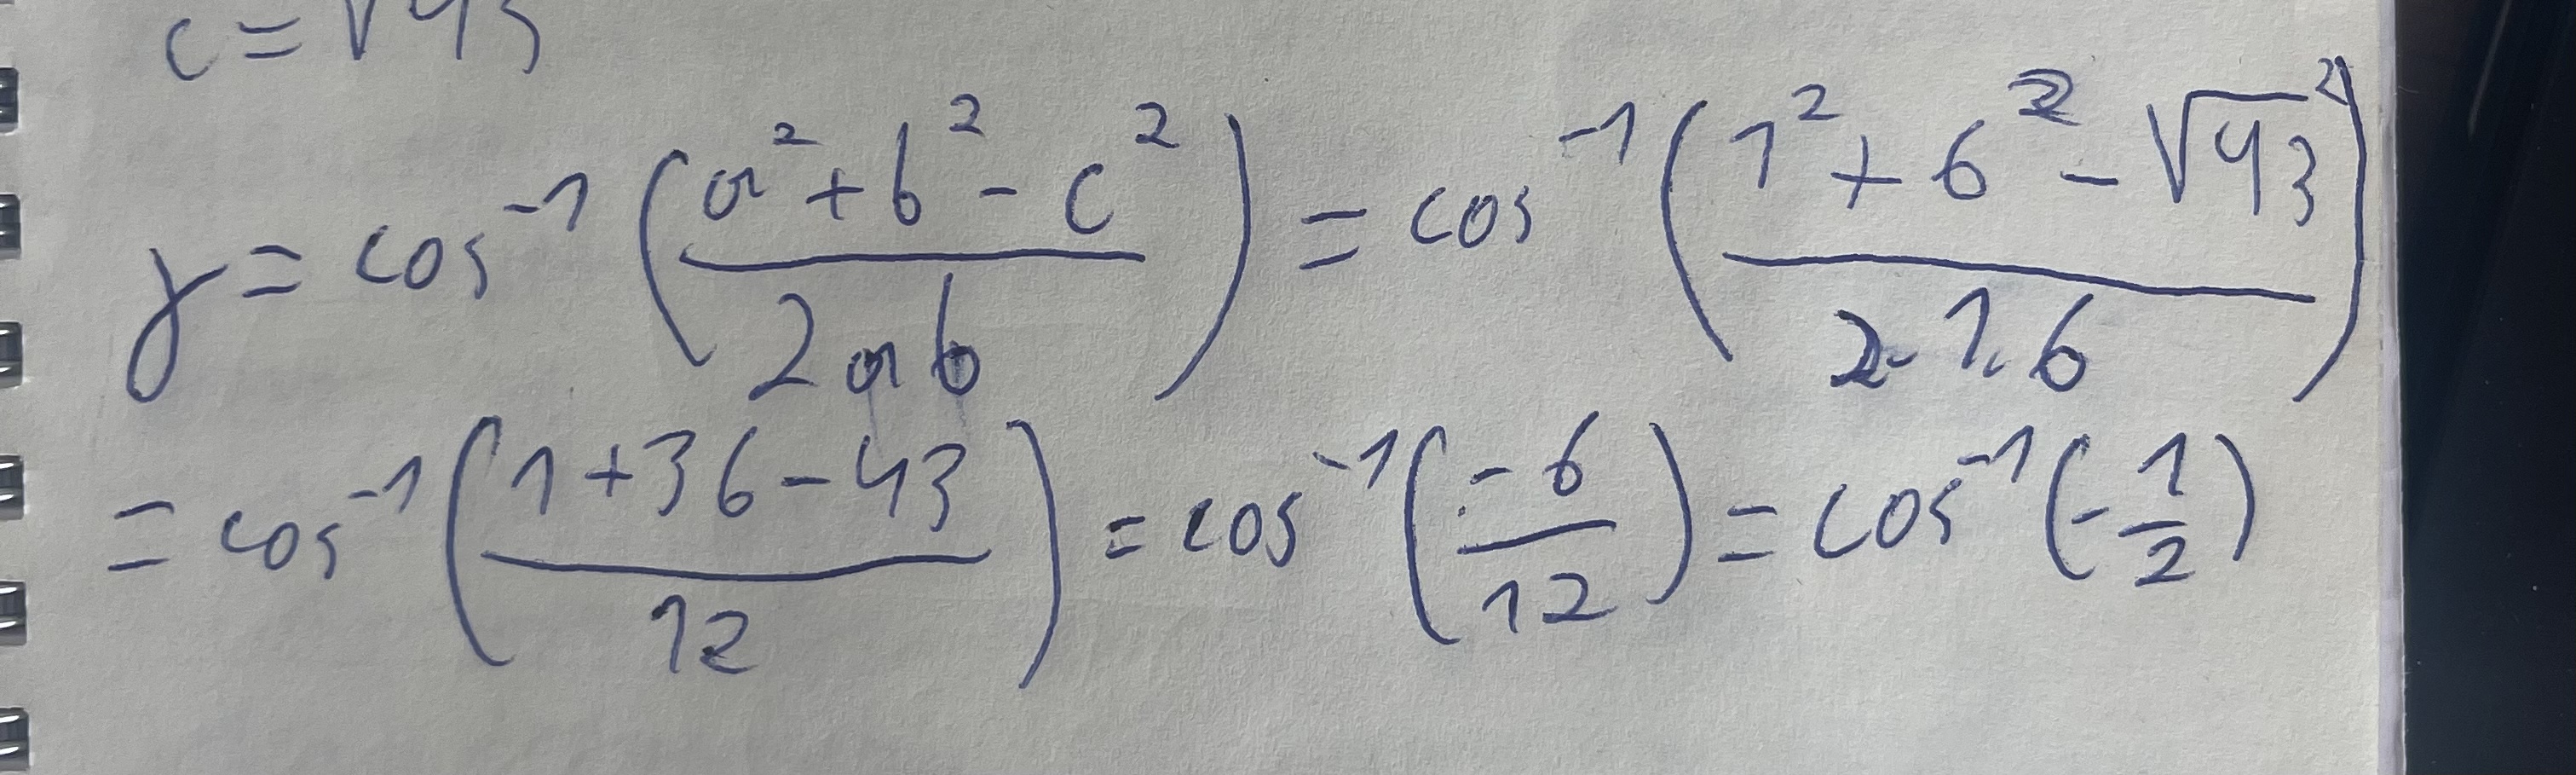 c = √43
γ = cos⁻¹ ( (a² + b² - c²) / (2ab) ) = cos⁻¹ ( (1² + 6² - √43²) / (2·1·6) )
= cos⁻¹ ( (1 + 36 - 43) / 12 ) = cos⁻¹ ( (-6) / 12 ) = cos⁻¹ ( - 1/2 )